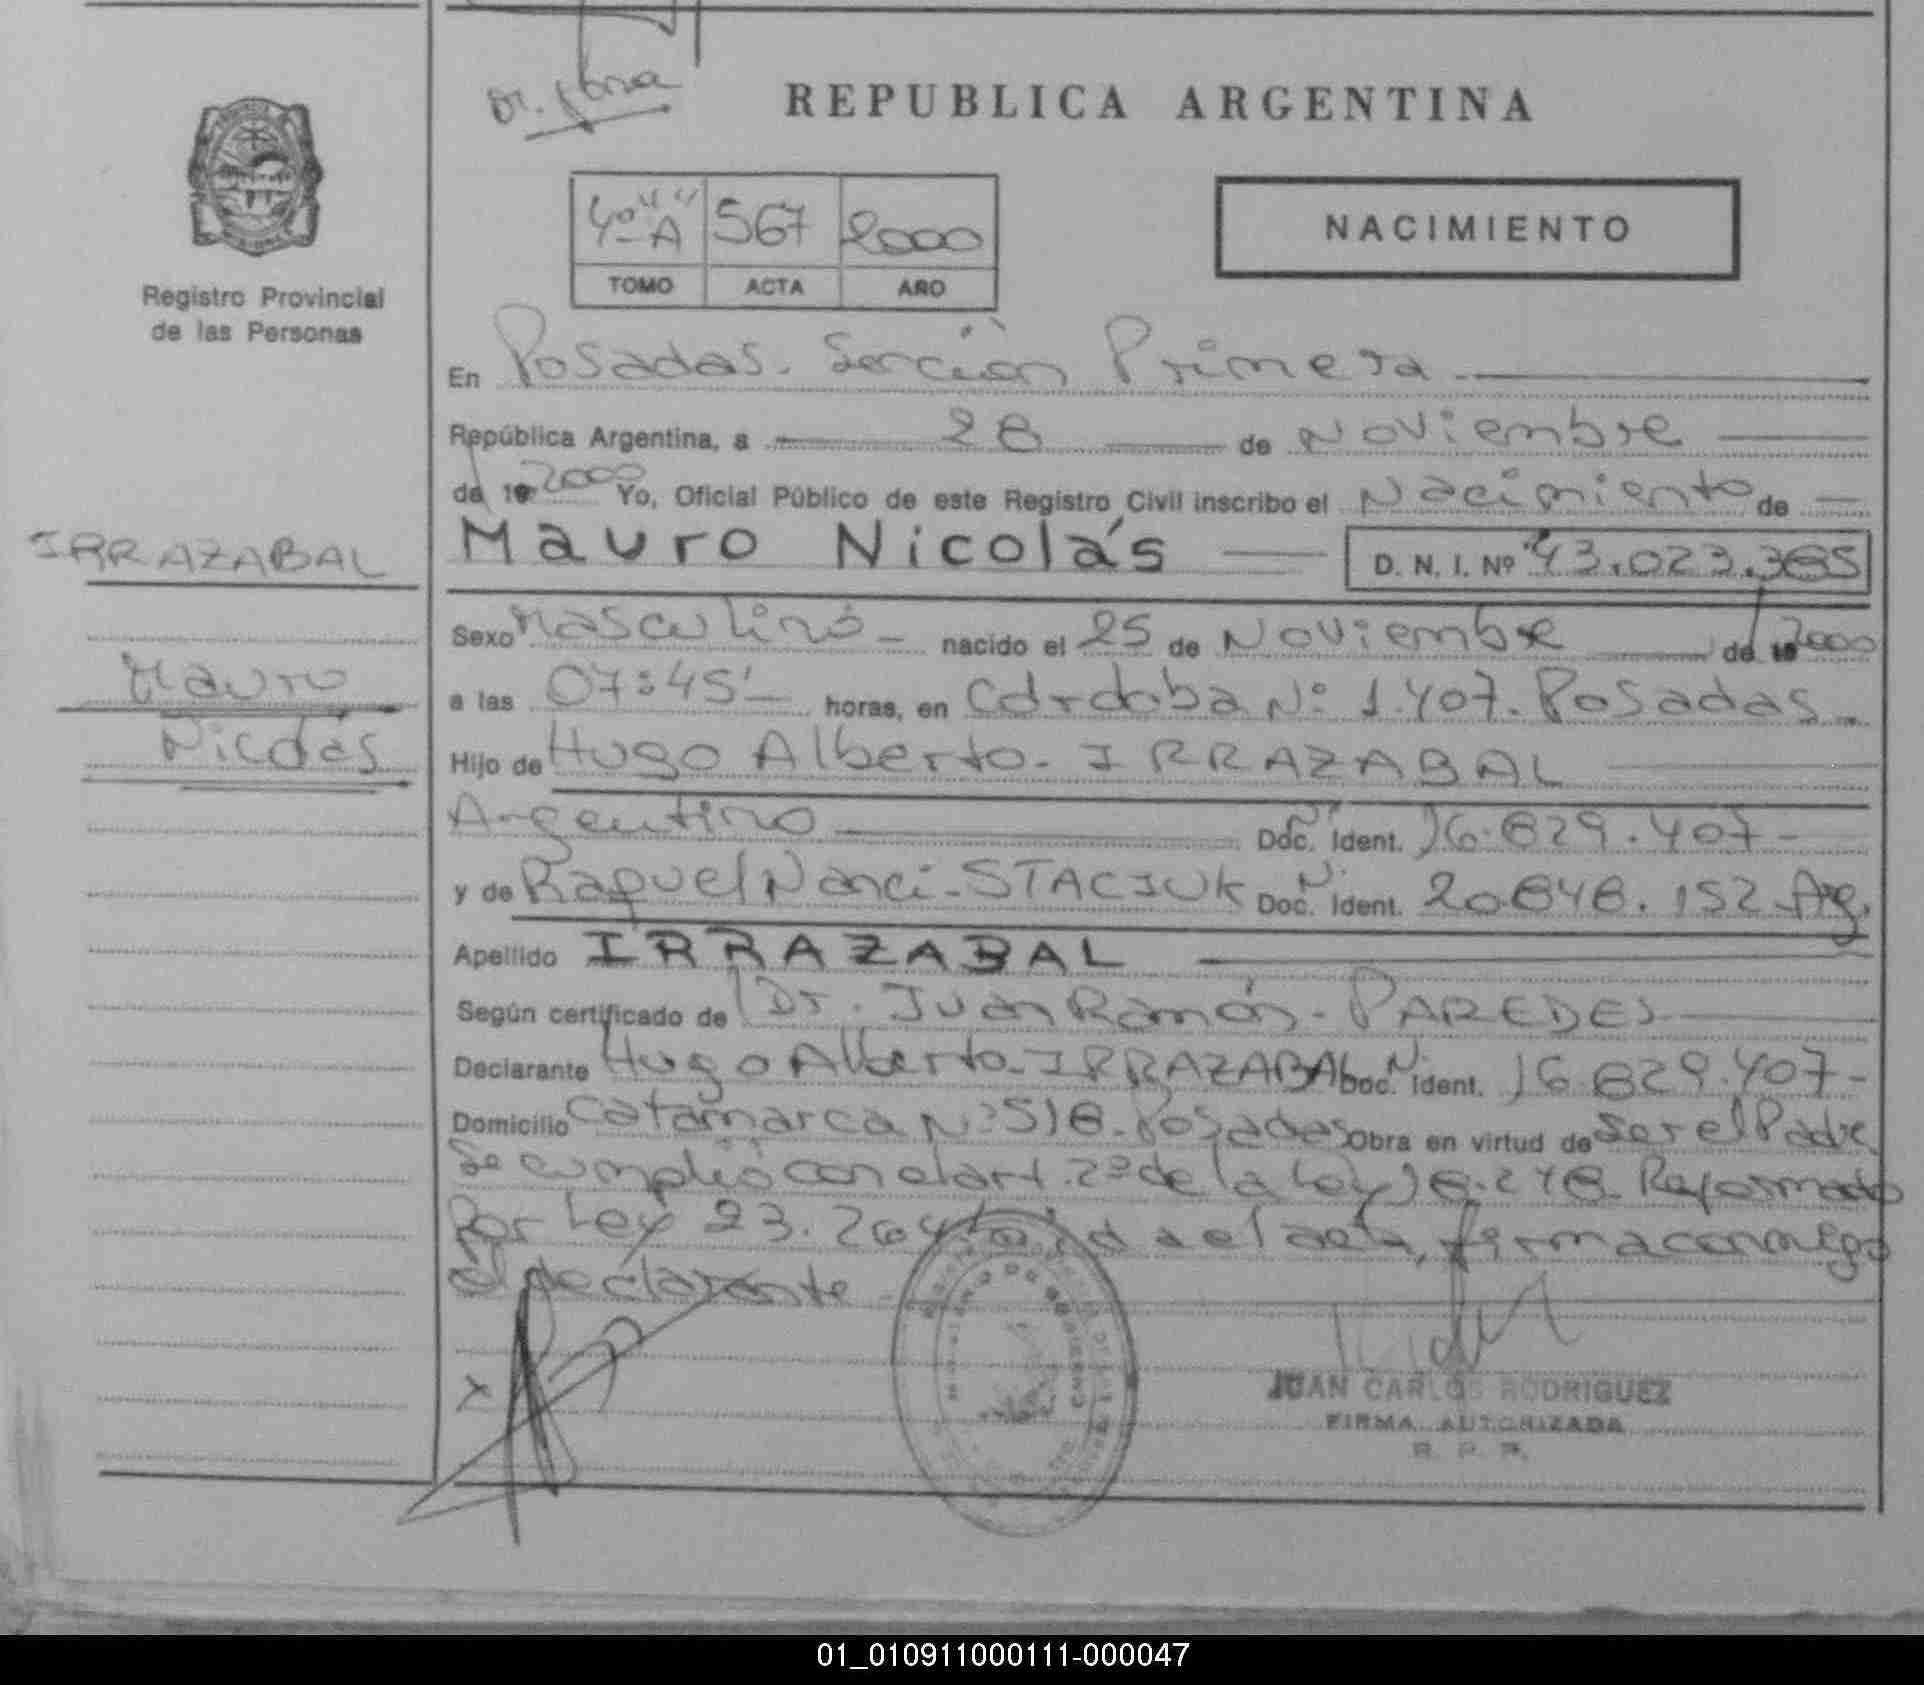 REPUBLICA ARGENTINA
4º "A" 567 2000
TOMO ACTA AÑO
NACIMIENTO
Registro Provincial
de las Personas
En Posadas. Sección Primera
República Argentina, a 28 de Noviembre
de 19 2000 Yo, Oficial Público de este Registro Civil inscribo el Nacimiento de
IRRAZABAL
Mauro Nicolás D. N. I. Nº 43.023.385
Sexo Masculino nacido el 25 de Noviembre de 19 2000
Mauro
Nicolás
a las 07:45' horas, en Córdoba Nº 1.407. Posadas
Hijo de Hugo Alberto. IRRAZABAL
Argentino Doc. Ident. 16.829.407
y de Raquel Nanci. STACIUK Doc. Ident. 20.848.152 Arg.
Apellido IRRAZABAL
Según certificado de Dr. Juan Ramón. PAREDES
Declarante Hugo Alberto. IRRAZABAL Doc. Ident. 16.829.407
Domicilio Catamarca Nº 518. Posadas Obra en virtud de Ser el Padre
Se cumplió con el art. 2º de la Ley 18.248. Reformado
Por Ley 23.264 leída el acta, firma conmigo
el declarante
X
JUAN CARLOS RODRIGUEZ
FIRMA AUTORIZADA
R. P. P.
01_010911000111-000047